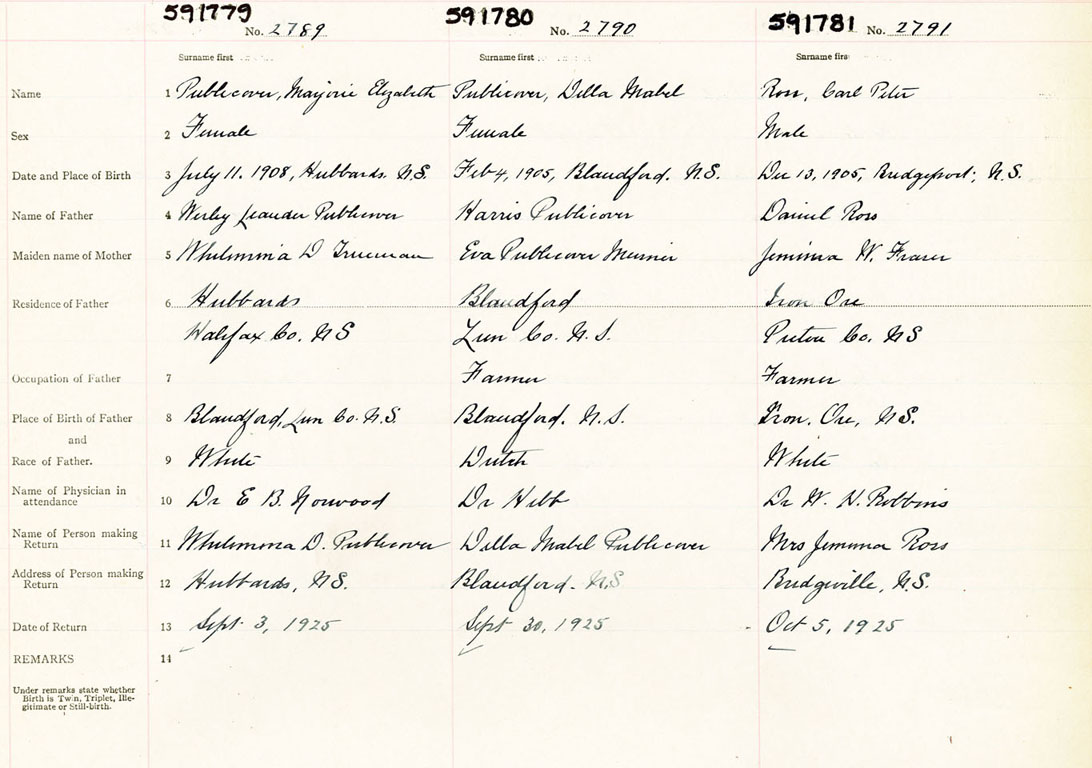 591779 591780 591781
No. 2789 No. 2790 No. 2791
Surname first Surname first Surname first
Name 1 Publicover, Marjorie Elizabeth Publicover, Della Mabel Ross, Carl Peter
Sex 2 Female Female Male
Date and Place of Birth 3 July 11. 1908, Hubbards. N.S. Feb 4, 1905, Blandford. N.S. Dec 13, 1905, Bridgeport, N.S.
Name of Father 4 Wesley Leander Publicover Harris Publicover Daniel Ross
Maiden name of Mother 5 Whilemina D Trueman Eva Publicover Meisner Jemima W. Fraser
Residence of Father 6 Hubbards Blandford Iron Ore
Halifax Co. NS Lun Co. N.S. Pictou Co. NS
Occupation of Father 7 Farmer Farmer
Place of Birth of Father 8 Blandford, Lun Co. N.S. Blandford. N.S. Iron. Ore, NS.
and
Race of Father. 9 White Dutch White
Name of Physician in
attendance 10 Dr E B. Norwood Dr Hebb Dr W. H. Robbins
Name of Person making
Return 11 Whilemina D. Publicover Della Mabel Publicover Mrs Jemima Ross
Address of Person making
Return 12 Hubbards, NS. Blandford. N.S Bridgeville, N.S.
Date of Return 13 Sept 3, 1925 Sept 30, 1925 Oct 5, 1925
REMARKS 14
Under remarks state whether
Birth is Twin, Triplet, Ille-
gitimate or Still-birth.